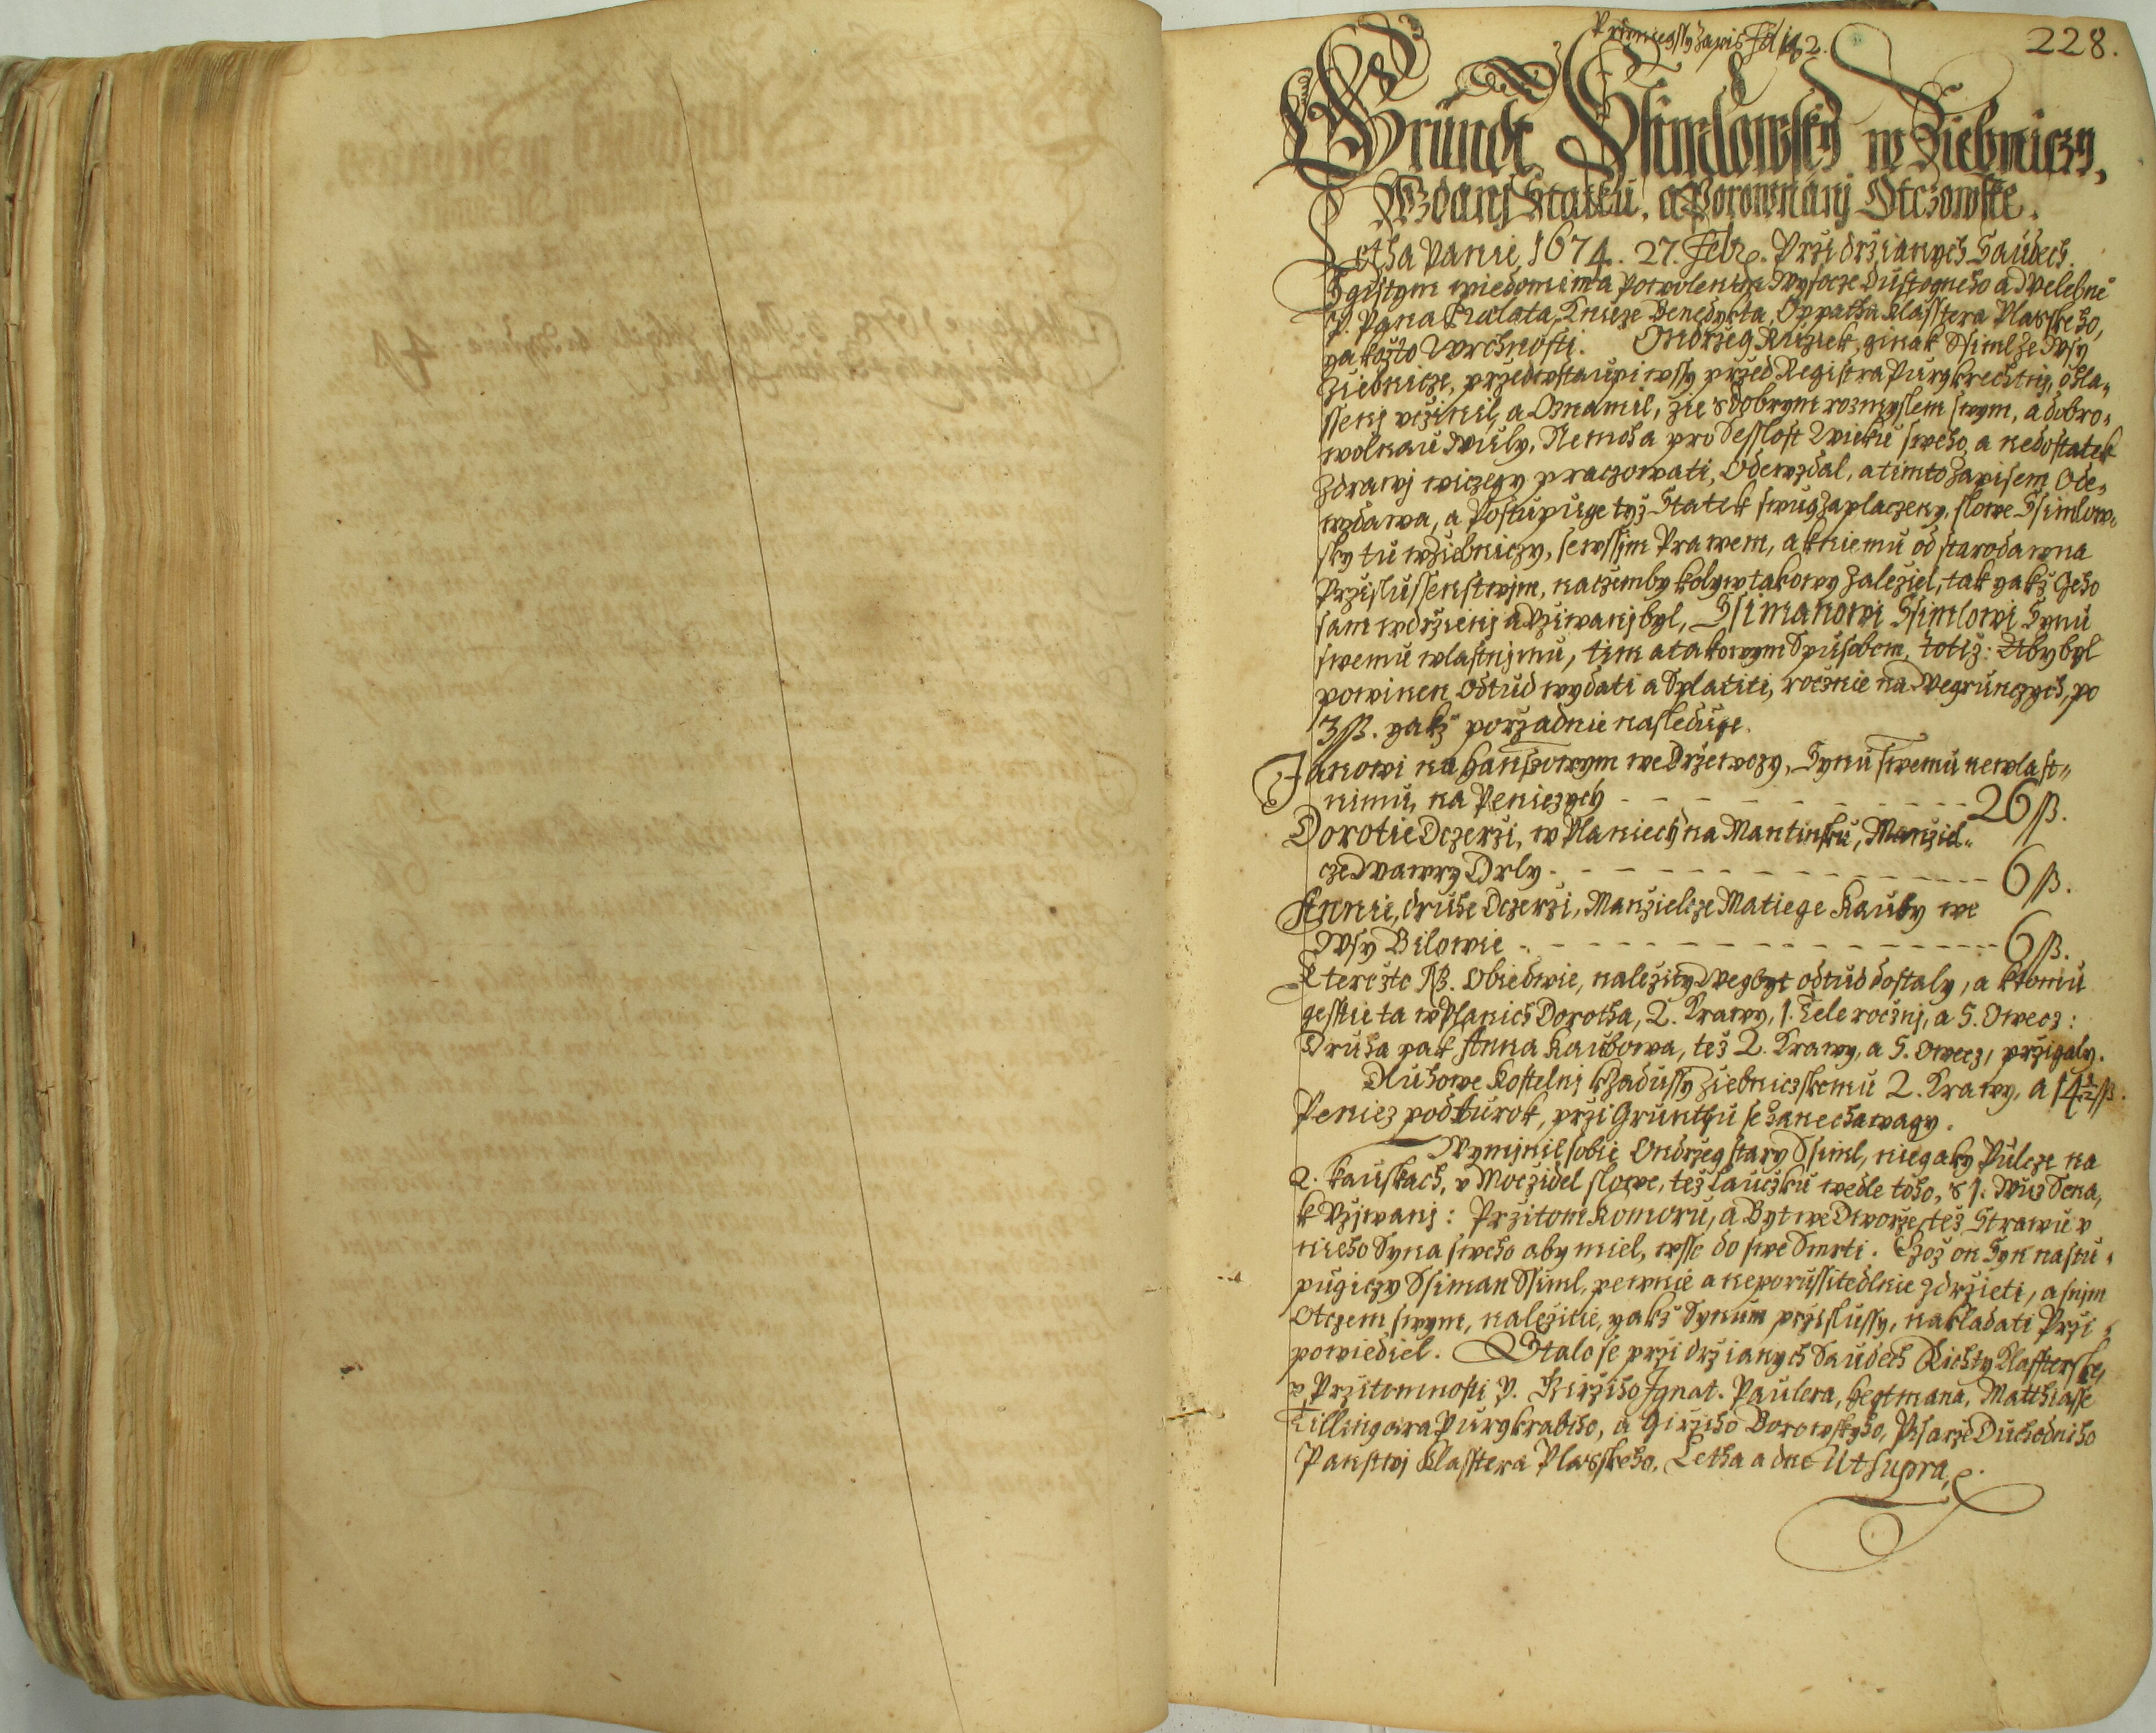 Prwnieyssy Zapis Fol 182.
228.
Grundt Ssimlowsky w Ziebniczy,
Wzdanj Statku, a Porownanj Otczowske.
Letha Panie 1674. 27. Febr. Przi drzianych Saudech.
S gistym wiedomim a Powolenim Wysocze Dustogneho a Velebne°
P. Pana Praelata, Knieze Benedykta, Oppatha Klasstera Plasskeho,
yakožto Wrchnosti. Ondrzeg Ružiek, ginak Ssiml ze Wsy
Ziebnicze, przedwstaupiwssy przed Registra Purgkrechtny, ohla„
ssenj vcžinil, a Oznamil, zie s dobrym rozmyslem swym, a dobro„
wolnau Wuly, Nemoha pro Sesslost Wieku sweho, a nedostatek
Zdrawj wiczegy praczowati, Odewzdal, a timto Zapisem Ode„
wzdawa, a Postupuge tyž Statek swug zaplaczeny, slowe Ssimlow„
sky tu w Ziebniczy, se wssim Prawem, a k niemu od starodawna
Przislussenstwjm, na czemby kolyw takowy Zaleziel, tak yakž geho
sam w drzienj a Vziwanj byl, Ssimanowi Ssimlowi Synu
swemu wlastnjmu, tim a takowym Spusobem, totiž: Aby byl
powinen odtud wydati a Splatiti, rocžnie na Vegrunczych, po
3 ß. yakž porzadnie nasleduge.
Janowi na Hanszowym we Drzewozy, Synu swemu newlast„
nimu, na Peniezych - - - - - - - - - 26 ß.
Dorotie Dczerzi, w Planiech na Mantinsku, Manziel„
cze Vawrzy Drly - - - - - - - - - 6 ß.
Annie, druhe Dczerzi, Manzielcze Matiege Kauby we
Wsy Bilowie - - - - - - - - - 6 ß.
Kterežto ß. Obiedwie, nalezity Vegbyt odtud dostaly, a k tomu
gesstie ta w Planich Dorotha, 2. Krawy, 1. Tele rocžnj, a 5. Owecz:
Druha pak Anna Kaubowa, tež 2. Krawy, a 5. Owecz, przigaly.
Dluhowe Kostelnj k Zadussy Ziebniczskemu 2. Krawy, a 14½ ß.
Peniez pod Aurok, przi Grunthu se zanechawagy.
Wymjnil sobie Ondrzeg stary Ssiml, niegaky Pulcze na
2. kauskach, v Mocžidel slowe, tež Laucžku wedle toho, s 1. Wuz Sena,
k Vzjwanj: Przitom Komoru, a Byt we Dworze, tež Strawu v
nieho Syna sweho aby miel, wsse do swe Smrti. Czož on Syn nastu„
pugiczy Ssiman Ssiml, pewnie a neporussitedlnie zdrzieti, a s njm
Otczem swym, nalezitie, yakž Synum przislussy, nakladati Przi„
powiediel. Stalo se przi drzianych Saudech Richty Klassterske,
w Przitomnosti P. Girziho Ignat. Paulera, hegtmana, Matthiasse
Tillingera Purgkrabiho, a Girziho Borowskyho, Pisarze Duchodniho
Panstwj Klasstera Plasskeho, Letha a dne Ut supra.